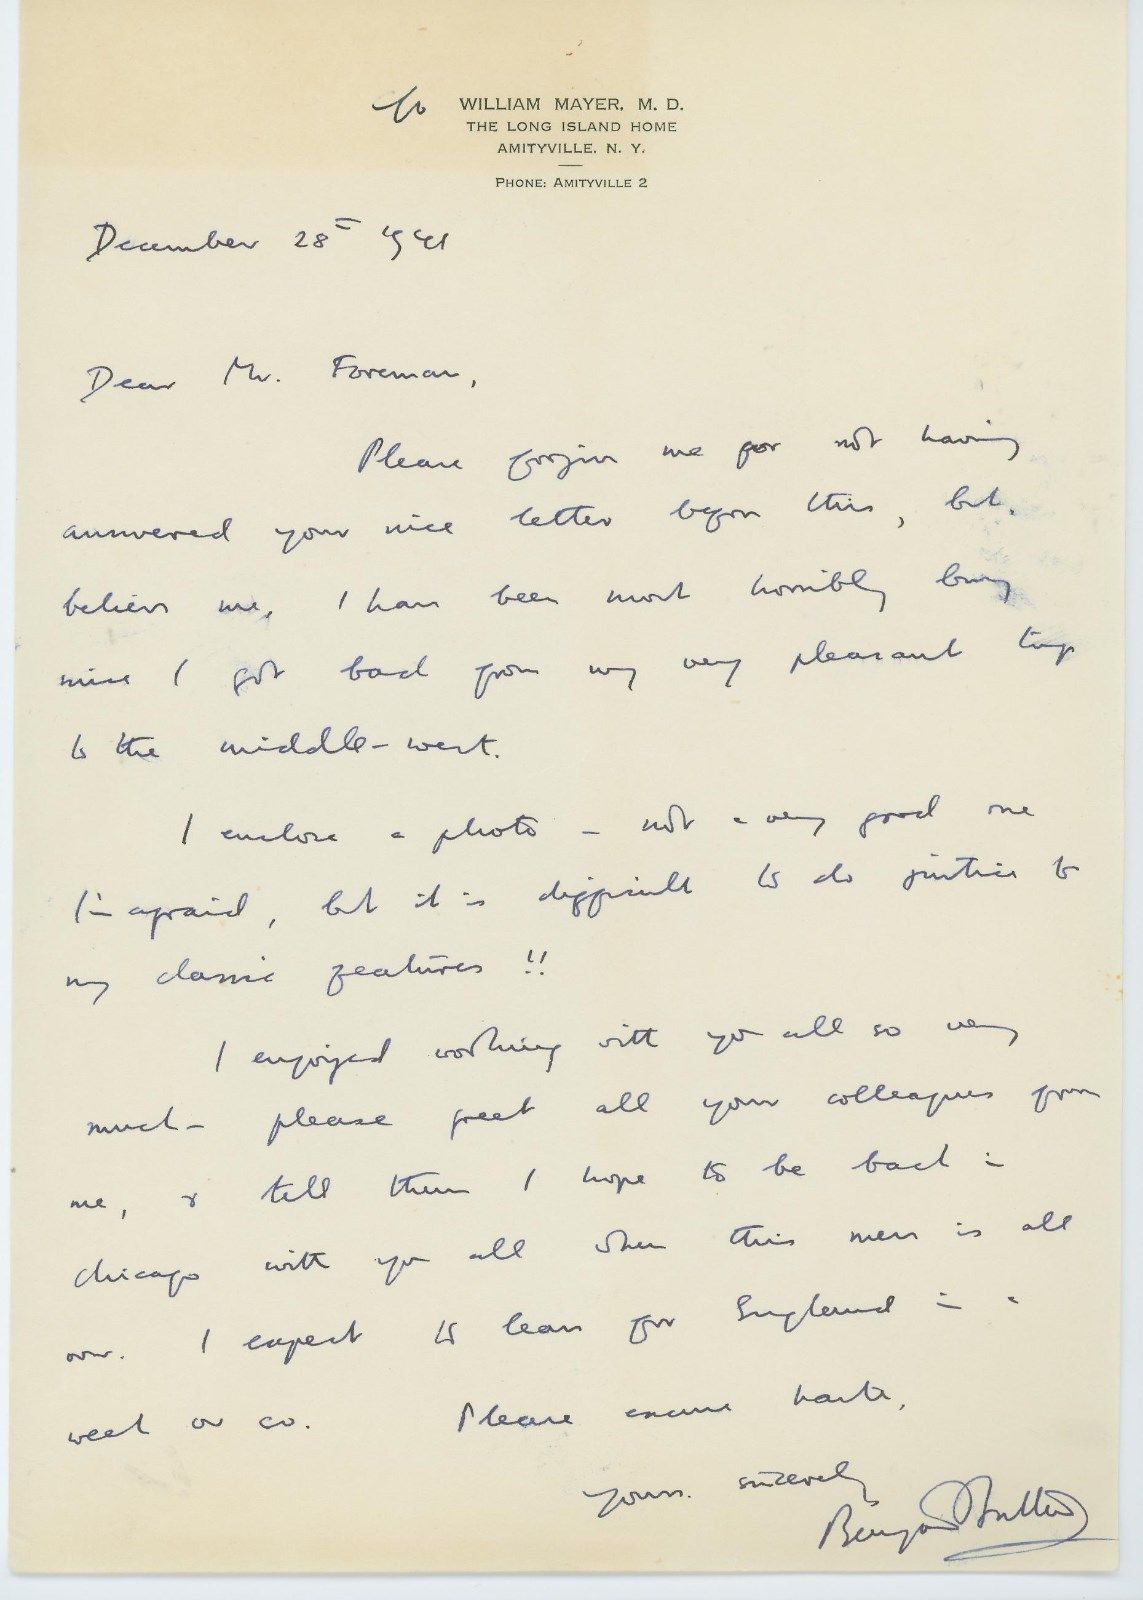 c/o WILLIAM MAYER, M. D.
THE LONG ISLAND HOME
AMITYVILLE, N. Y.
PHONE: AMITYVILLE 2
December 28th 1941
Dear Mr. Foreman,
Please forgive me for not having
answered your nice letter before this, but,
believe me, I have been most horribly busy
since I got back from my very pleasant trip
to the middle-west.
I enclose a photo - not a very good one
I'm afraid, but it is difficult to do justice to
my classic features !!
I enjoyed working with you all so very
much - please greet all your colleagues from
me, & tell them I hope to be back in
Chicago with you all when this mess is all
over. I expect to leave for England in a
week or so. Please excuse haste,
Yours sincerely
Benjamin Britten